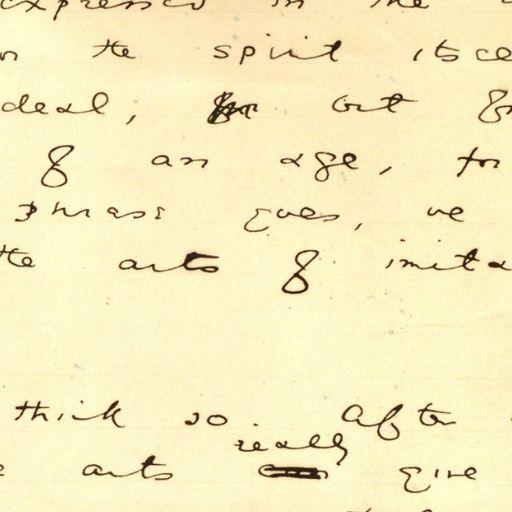 expressed in the
on the spirit itse
deal, but
of an age, for
phrase goes, we
the arts of imita
think so. After
really
arts give